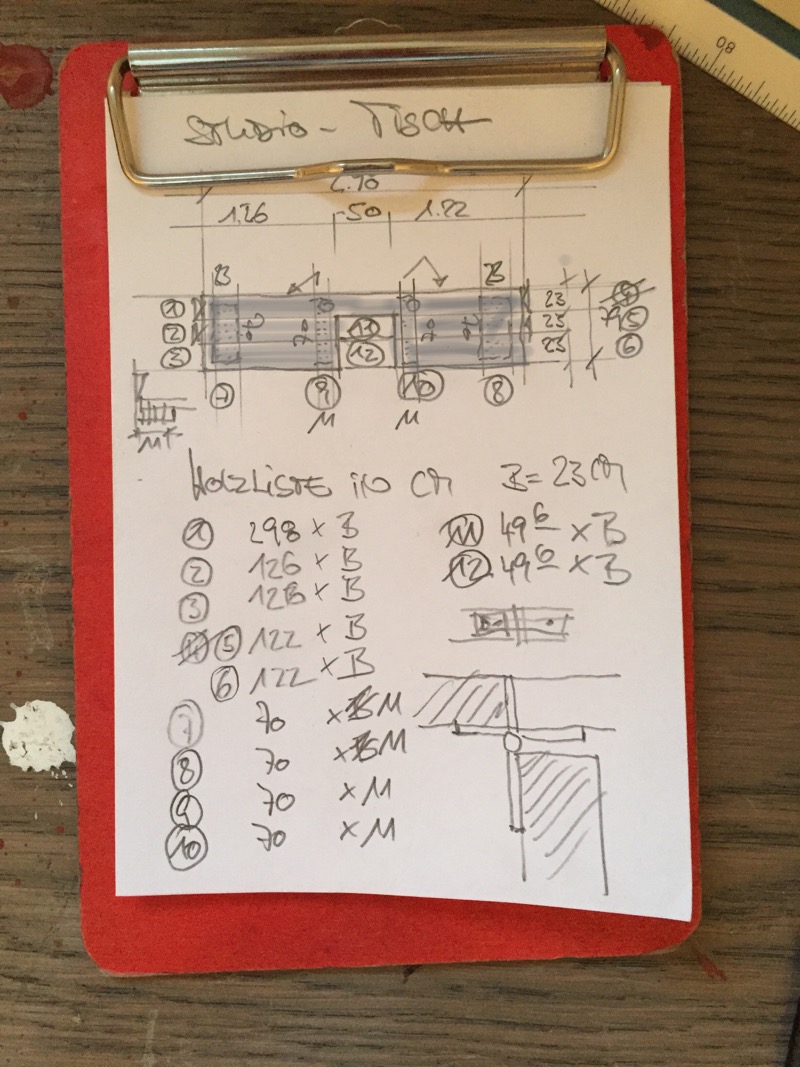 STUDIO - TISCH
1.26 50 1.22
23 23
1 70 70 11 70 70 23
2 23 5
3 12 23 6
7 9 10 8
M M
M
HOLZLISTE IN CM B= 23 CM
1 298 x B
2 126 x B
3 126 x B
5 122 x B
6 122 x B
7 70 x M
8 70 x M
9 70 x M
10 70 x M
11 49 6 x B
12 49 6 x B
80